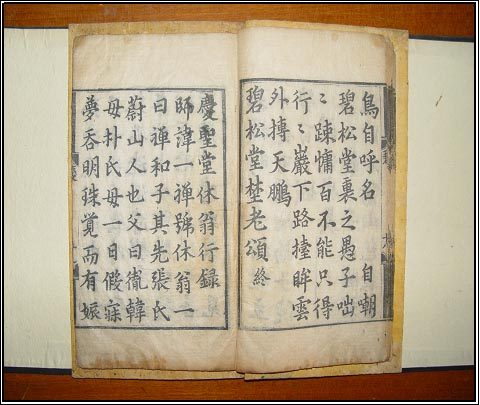 鳥自呼名 自嘲
碧松堂裏之愚子咄
〻踈慵百不能只得
行〻巖下路擡眸雲
外搏天鵬
碧松堂埜老頌 終
慶聖堂休翁行録
師諱一禪號休翁一
曰禪和子其先張氏
蔚山人也父曰胤韓
母朴氏母一日假寐
夢呑明珠覺而有娠